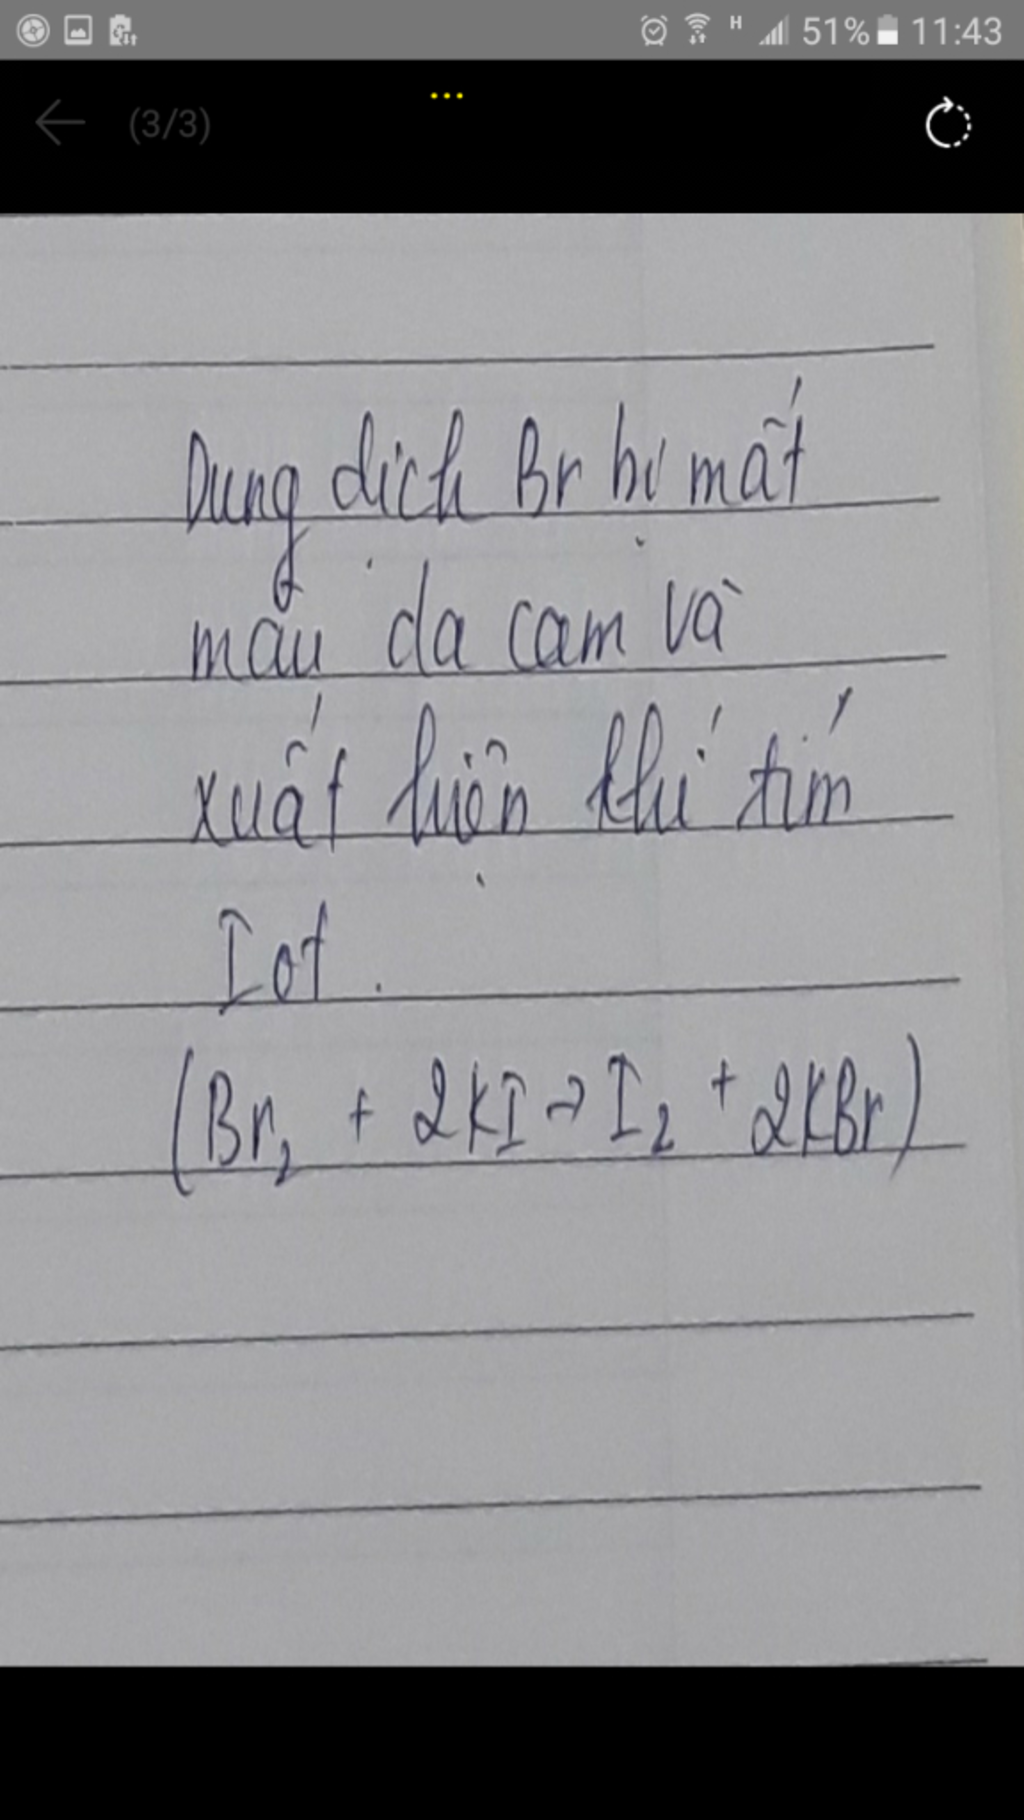 H 51% 11:43
(3/3)
Dung dịch Br bị mất
màu da cam và
xuất hiện khí tím
Iot.
(Br₂ + 2KI → I₂ + 2KBr)